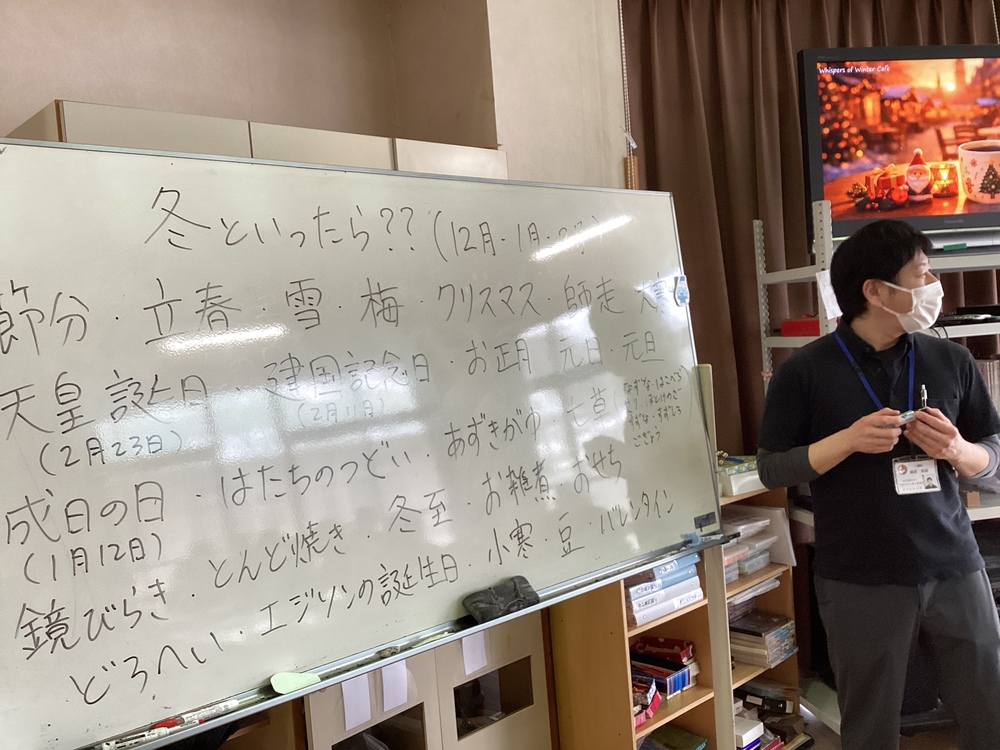 冬といったら??(12月・1月・2月)
節分・立春・雪・梅・クリスマス・師走 大寒
天皇誕生日・建国記念日・お正月 元日 元旦
(2月23日) (2月11日)
成日の日・はたちのつどい・あずきがゆ・七草(なずな・はこべら
ほとけのざ
すずな・すずしろ
ごぎょう
(1月12日)
鏡びらき・とんど焼き・冬至・お雑煮・おせち
どろへい・エジソンの誕生日・小寒・豆・バレンタイン
Whispers of Winter Café